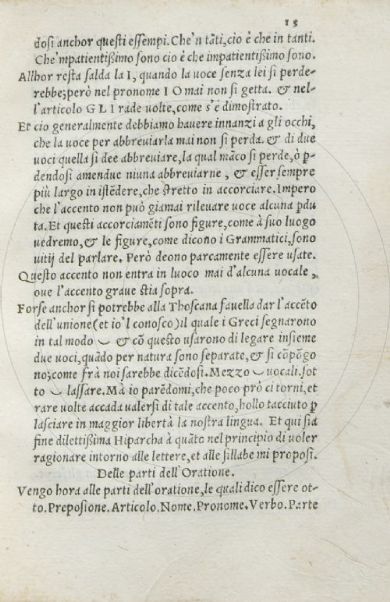 15
dosi anchor questi essempi. Che'n tāti, cio è che in tanti.
Che'mpatientißimo sono cio è che impatientißimo sono.
Allhor resta salda la I, quando la uoce senza lei si perde-
rebbe; però nel pronome I O mai non si getta. & nel-
l'articolo G L I rade uolte, come s'è dimostrato.
Et cio generalmente debbiamo hauere innanzi a gli occhi,
che la uoce per abbreuiarla mai non si perda. & di due
uoci quella si dee abbreuiare, la qual māco si perde, ò p̄-
dendosi amendue niuna abbreuiarne, & esser sempre
più largo in istēdere, che stretto in accorciare. Impero
che l'accento non può giamai rileuare uoce alcuna p̄du
ta. Et questi accorciamēti sono figure, come à suo luogo
uedremo, & le figure, come dicono i Grammatici, sono
uitij del parlare. Però deono parcamente essere usate.
Questo accento non entra in luoco mai d'alcuna uocale,
oue l'accento graue stia sopra.
Forse anchor si potrebbe alla Thoscana fauella dar l'accēto
dell'unione (et io'l conosco) il quale i Greci segnarono
in tal modo ‿ & cō questo usarono di legare insieme
due uoci, quādo per natura sono separate, & si cōpōgo
no; come frà noi sarebbe dicēdosi. Mezzo ‿ uocali. sot
to ‿ lassare. Mà io parēdomi, che poco prò ci torni, et
rare uolte accada ualersi di tale accento, hollo tacciuto p̄
lasciare in maggior libertà la nostra lingua. Et qui sia
fine dilettißima Hiparcha à quāto nel principio di uoler
ragionare intorno alle lettere, et alle sillabe mi proposi.
Delle parti dell'Oratione.
Vengo hora alle parti dell'oratione, le quali dico essere ot-
to. Preposione. Articolo. Nome. Pronome. Verbo. Parte